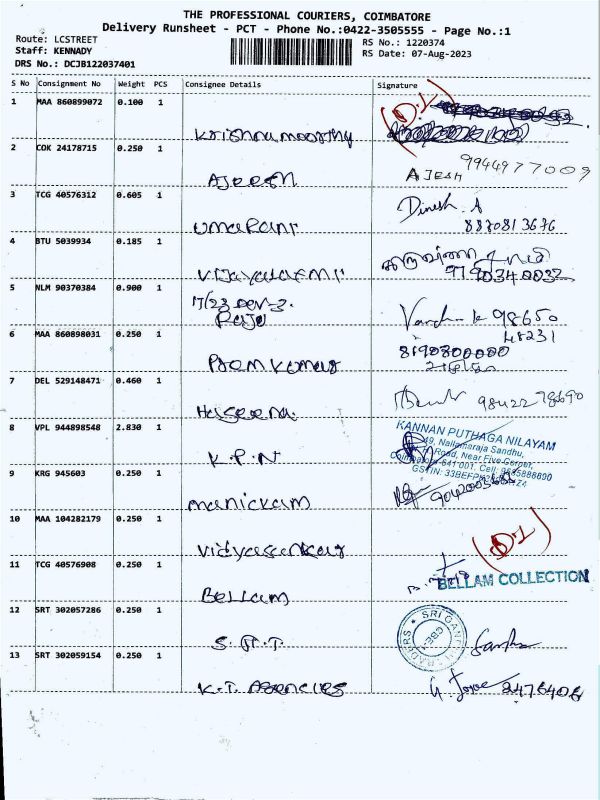 THE PROFESSIONAL COURIERS, COIMBATORE
Delivery Runsheet - PCT - Phone No.:0422-3505555 - Page No.:1
Route: LCSTREET
Staff: KENNADY
DRS No.: DCJB122037401
RS No.: 1220374
RS Date: 07-Aug-2023
S No Consignment No Weight PCS Consignee Details Signature
1 MAA 860899072 0.100 1 Krishnamoorthy
2 COK 24178715 0.250 1 AJEESH AJESH 9944977009
3 TCG 40576312 0.605 1 UmaRani Dinesh A
8870813676
4 BTU 5039934 0.185 1 Vijayalaxmi
5 NLM 90370384 0.900 1 17/23 DEV-3.
Raja 98650
48231
6 MAA 860898031 0.250 1 Premkumar 8190800000
7 DEL 529148471 0.460 1 Haseena.
8 VPL 944898548 2.830 1 K.P.N
KANNAN PUTHAGA NILAYAM
49, Nallamaraja Sandhu,
Road, Near Five Corner,
Coimbatore-641 001. Cell:
GSTIN: 33BEFP
9 KRG 945603 0.250 1 manickam
10 MAA 104282179 0.250 1 Vidyasankar
11 TCG 40576908 0.250 1 BELLAM
BELLAM COLLECTION
12 SRT 302057286 0.250 1 S.R.T.
SRI GANESH TRADERS
13 SRT 302059154 0.250 1 K.T. AGENCIES 2476406